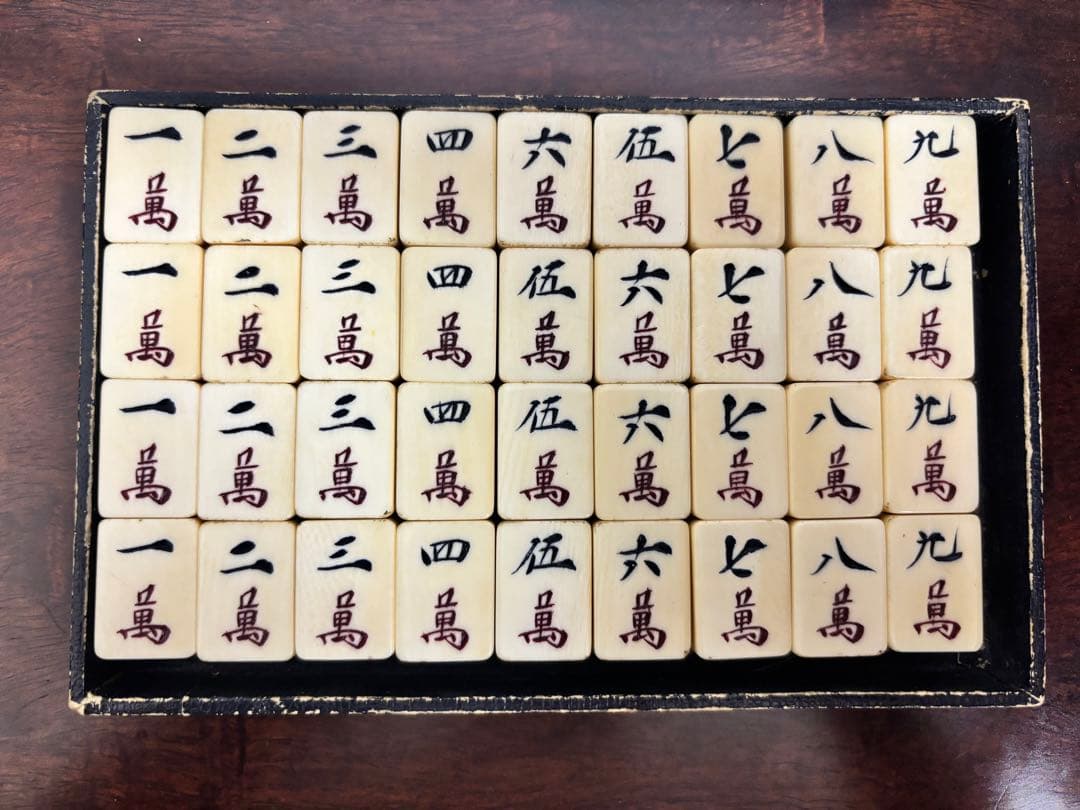 一 二 三 四 六 伍 七 八 九
萬 萬 萬 萬 萬 萬 萬 萬 萬
一 二 三 四 伍 六 七 八 九
萬 萬 萬 萬 萬 萬 萬 萬 萬
一 二 三 四 伍 六 七 八 九
萬 萬 萬 萬 萬 萬 萬 萬 萬
一 二 三 四 伍 六 七 八 九
萬 萬 萬 萬 萬 萬 萬 萬 萬